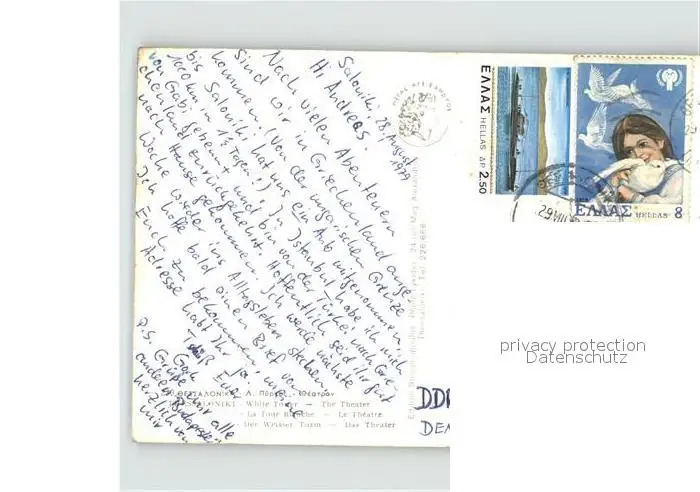 Saloniki, 28. August 1979
Hi Andreas.
Nach vielen Abenteuern
sind wir in Griechenland ange-
kommen! (Von der ungarischen Grenze
bis Saloniki hat uns ein Auto mitgenommen,
1000 km in 1½ Tagen!) In Istanbul habe ich mich
von Gabi getrennt und bin von der Türkei nach Grie-
chenland zurückgekehrt. Hoffentlich seid ihr gut
nach Hause gekommen. Ich werde nächste
Woche wieder ins Alltagsleben stecken
Ich hoffe bald einen Brief von
Euch zu bekommen, meine
Adresse habt Ihr ja.
Tschüß Eure
Gabi
P.S. Grüße Ihr alle
anderen Budapester
herzlich von
mir
ΜΕΓΑΣ ΑΛΕΞΑΝΔΡΟΣ
ΕΛΛΑΣ HELLAS ΔΡ 2.50
ΕΛΛΑΣ HELLAS 8
29 VIII
ΘΕΣΣΑΛΟΝΙΚΗ - Λ. Πύργος - Θέατρον
SALONIKI - White Tower - The Theater
- La Tour Blanche - Le Théâtre
- Der Weisser Turm - Das Theater
DDR
privacy protection
Datenschutz